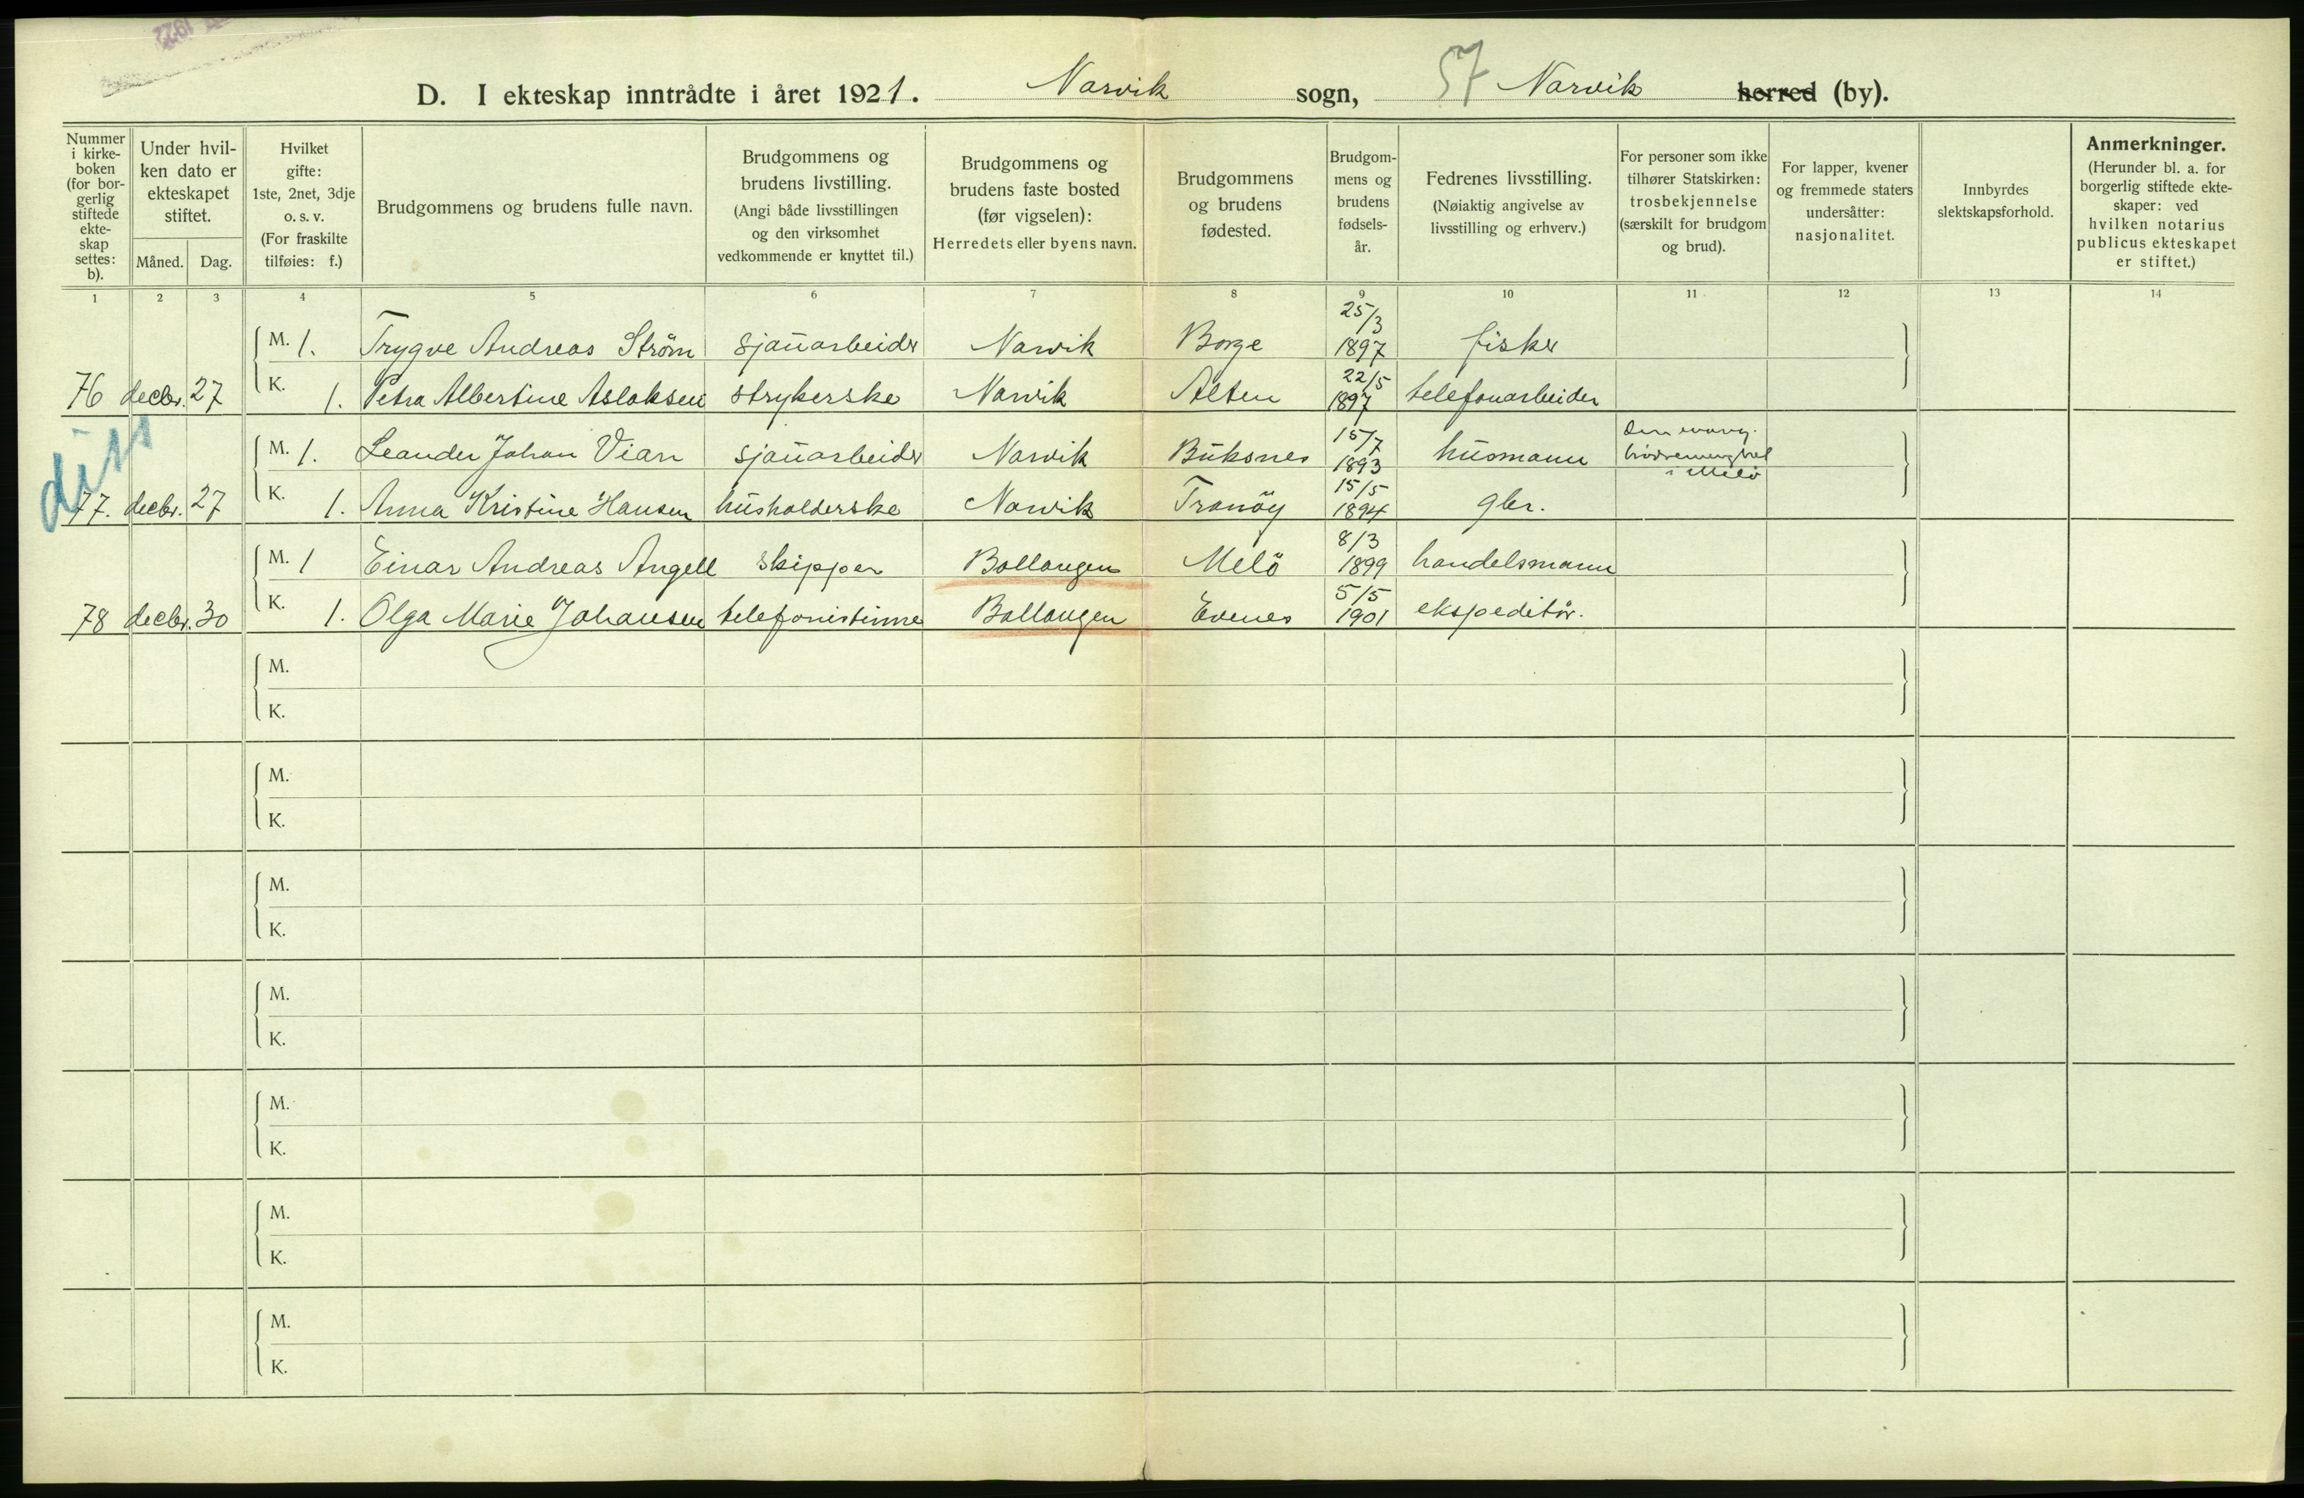 1922
D. I ekteskap inntrådte i året 1921. Narvik sogn, 57 Narvik herred (by).
Nummer i kirke- boken (for bor- gerlig stiftede ekte- skap settes: b).
Under hvil- ken dato er ekteskapet stiftet.
Måned. Dag.
Hvilket gifte: 1ste, 2net, 3dje o. s. v. (For fraskilte tilføies: f.)
Brudgommens og brudens fulle navn.
Brudgommens og brudens livstilling. (Angi både livsstillingen og den virksomhet vedkommende er knyttet til.)
Brudgommens og brudens faste bosted (før vigselen): Herredets eller byens navn.
Brudgommens og brudens fødested.
Brudgom- mens og brudens fødsels- år.
Fedrenes livsstilling. (Nøiaktig angivelse av livsstilling og erhverv.)
For personer som ikke tilhører Statskirken: trosbekjennelse (særskilt for brudgom og brud).
For lapper, kvener og fremmede staters undersåtter: nasjonalitet.
Innbyrdes slektskapsforhold.
Anmerkninger. (Herunder bl. a. for borgerlig stiftede ekte- skaper: ved hvilken notarius publicus ekteskapet er stiftet.)
1 2 3 4 5 6 7 8 9 10 11 12 13 14
M. 1. Trygve Andreas Strøm sjauarbeider Narvik Borge 25/3 1897 fisker
76 decbr. 27 K. 1. Petra Albertine Aslaksen strykerske Narvik Alten 22/5 1897 telefonarbeider
diss
M. 1. Leander Johan Vian sjauarbeider Narvik Buksnes 15/7 1893 husmann Den evang. i Melö
77. decbr. 27 K. 1. Anna Kristine Hansen husholderske Narvik Tranöy 15/5 1894 gbr.
M. 1 Einar Andreas Angell skipper Ballangen Melö 8/3 1899 handelsmann
78 decbr. 30 K. 1. Olga Marie Johansen telefonistinne Ballangen Evenes 5/5 1901 ekspeditör.
M.
K.
M.
K.
M.
K.
M.
K.
M.
K.
M.
K.
M.
K.